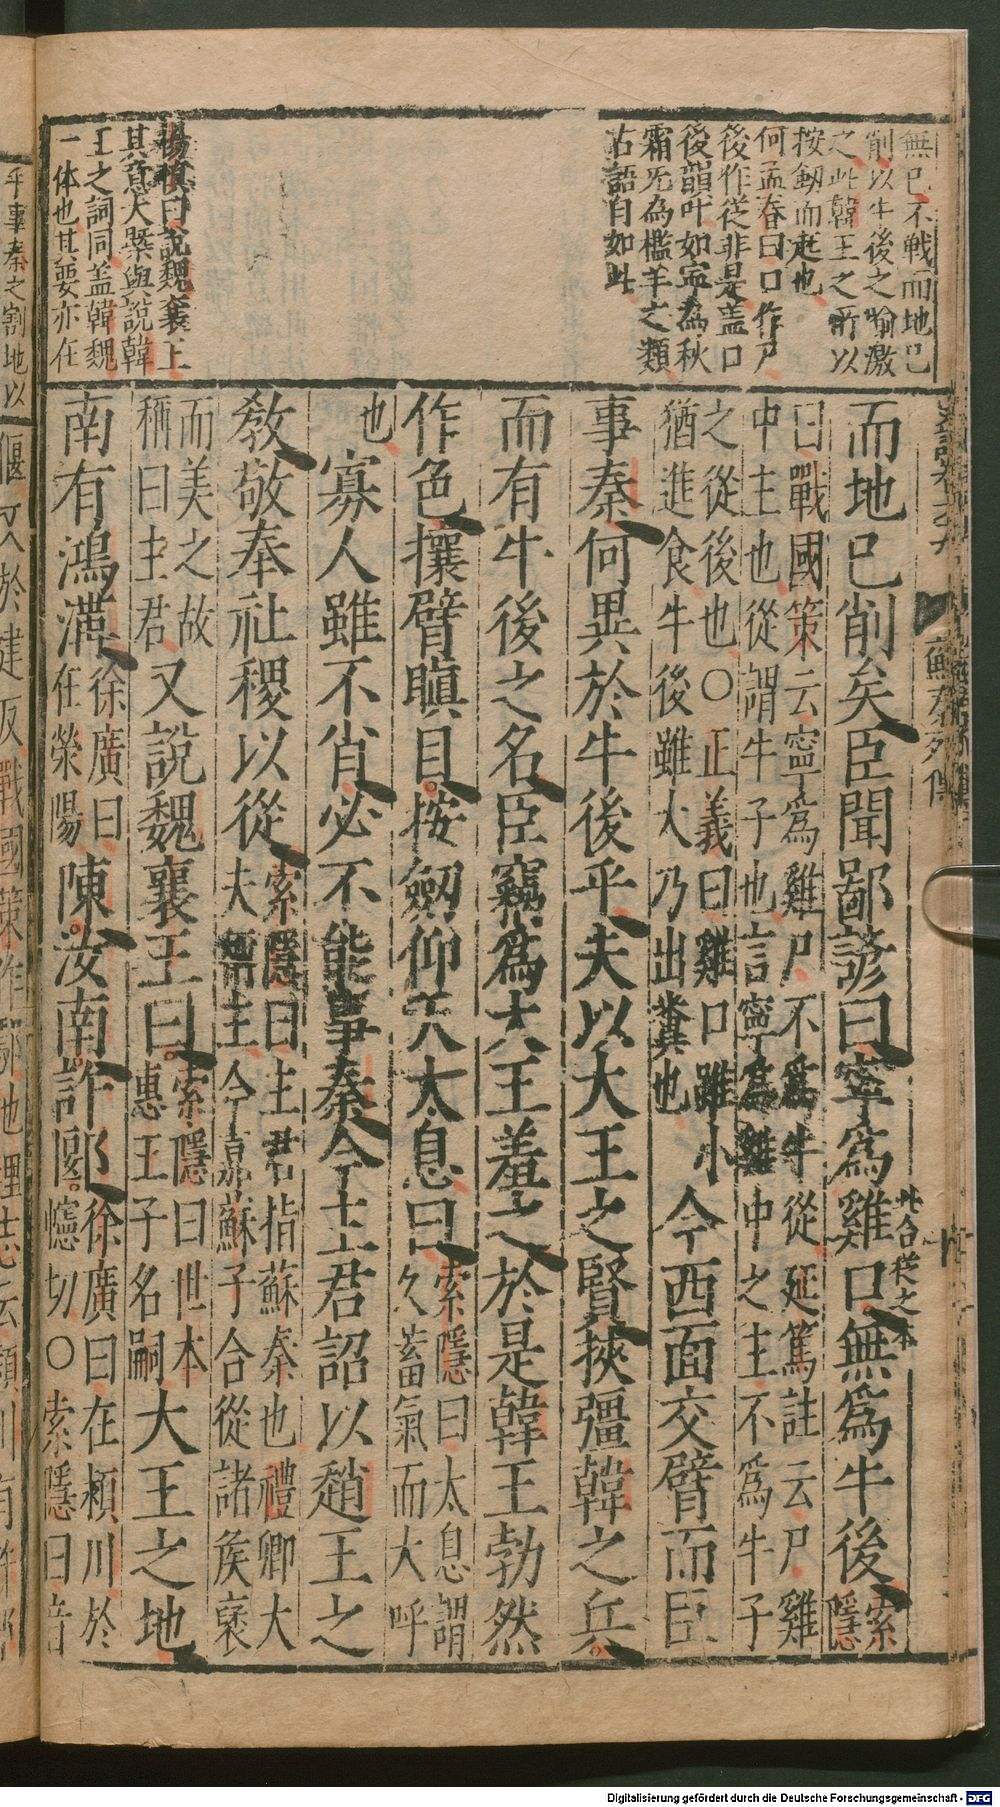 無已不戰而地已
削以牛後之喻激
之此韓王之所以
按劔而起也
何孟春曰口作尸
後作從非是盖口
後韻叶如寧為秋
霜旡為檻羊之類
古語自如此
楊慎曰說魏襄王
其意大槩與說韓
王之詞同盖韓魏
一体也其要亦在
蘇秦列傳
而地已削矣臣聞鄙諺曰寧爲雞口無爲牛後索隱
此合從之本
曰戰國策云寧爲雞尸不爲牛從延篤註云尸雞
中主也從謂牛子也言寧爲雞中之主不爲牛子
之從後也〇正義曰雞口雖小
猶進食牛後雖大乃出糞也
今西面交臂而臣
事秦何異於牛後乎夫以大王之賢挾彊韓之兵
而有牛後之名臣竊爲大王羞之於是韓王勃然
作色攘臂瞋目按劔仰天太息曰
索隱曰太息謂
久蓄氣而大呼
也
寡人雖不肖必不能事秦今主君詔以趙王之
敎敬奉社稷以從
索隱曰主君指蘇秦也禮卿大
夫稱主今嘉蘇子合從諸侯褒
而美之故
稱曰主君
又說魏襄王曰
索隱曰世本
惠王子名嗣
大王之地
南有鴻溝
徐廣曰
在滎陽
陳汝南許郾
徐廣曰在潁川於
幰切〇索隱曰音
Digitalisierung gefördert durch die Deutsche Forschungsgemeinschaft - DFG